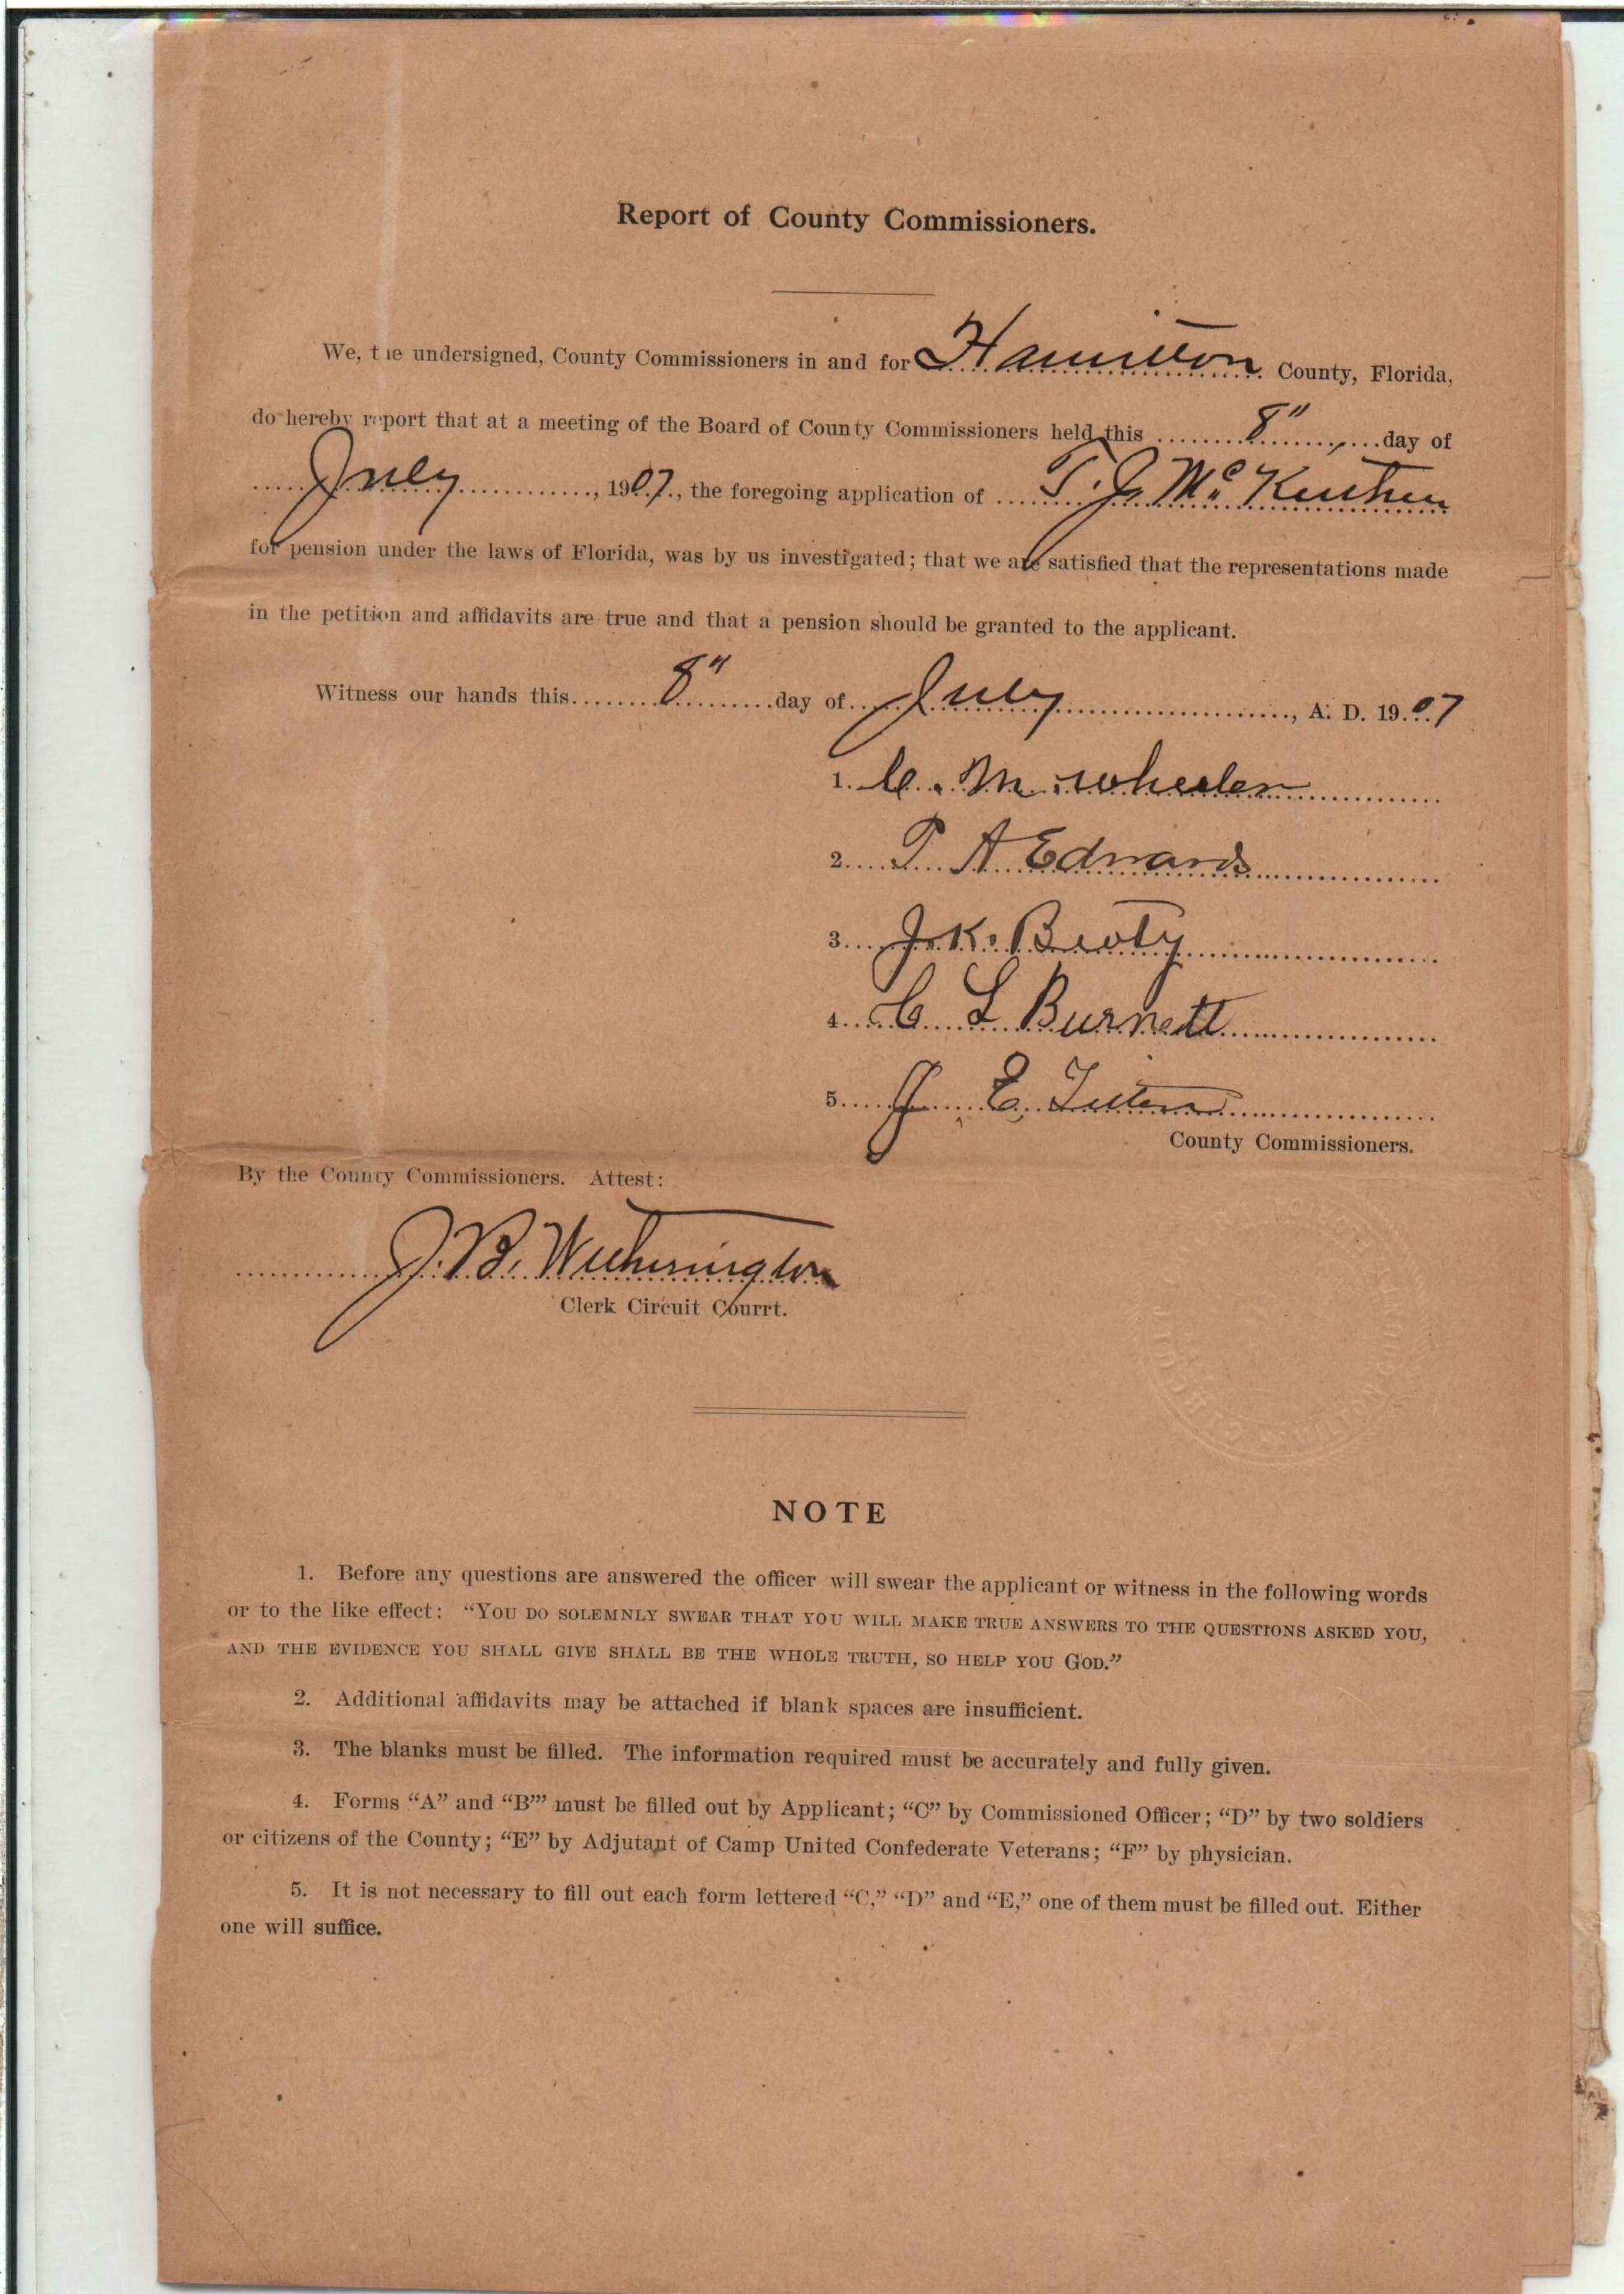 Report of County Commissioners.
We, the undersigned, County Commissioners in and for Hamilton County, Florida,
do hereby report that at a meeting of the Board of County Commissioners held this 8" day of
July, 1907, the foregoing application of J. Mc
for pension under the laws of Florida, was by us investigated; that we are satisfied that the representations made
in the petition and affidavits are true and that a pension should be granted to the applicant.
Witness our hands this 8" day of July, A. D. 1907
1. C. M. Wheeler
2. P A Edwards
3. J. K.
4. C L Burnett
5. J E
County Commissioners.
By the County Commissioners. Attest:
J. B. Witherington
Clerk Circuit Courrt.
CIRCUIT HAMILTON
NOTE
1. Before any questions are answered the officer will swear the applicant or witness in the following words
or to the like effect: "YOU DO SOLEMNLY SWEAR THAT YOU WILL MAKE TRUE ANSWERS TO THE QUESTIONS ASKED YOU,
AND THE EVIDENCE YOU SHALL GIVE SHALL BE THE WHOLE TRUTH, SO HELP YOU GOD."
2. Additional affidavits may be attached if blank spaces are insufficient.
3. The blanks must be filled. The information required must be accurately and fully given.
4. Forms "A" and "B'" must be filled out by Applicant; "C" by Commissioned Officer; "D" by two soldiers
or citizens of the County; "E" by Adjutant of Camp United Confederate Veterans; "F" by physician.
5. It is not necessary to fill out each form lettered "C," "D" and "E," one of them must be filled out. Either
one will suffice.